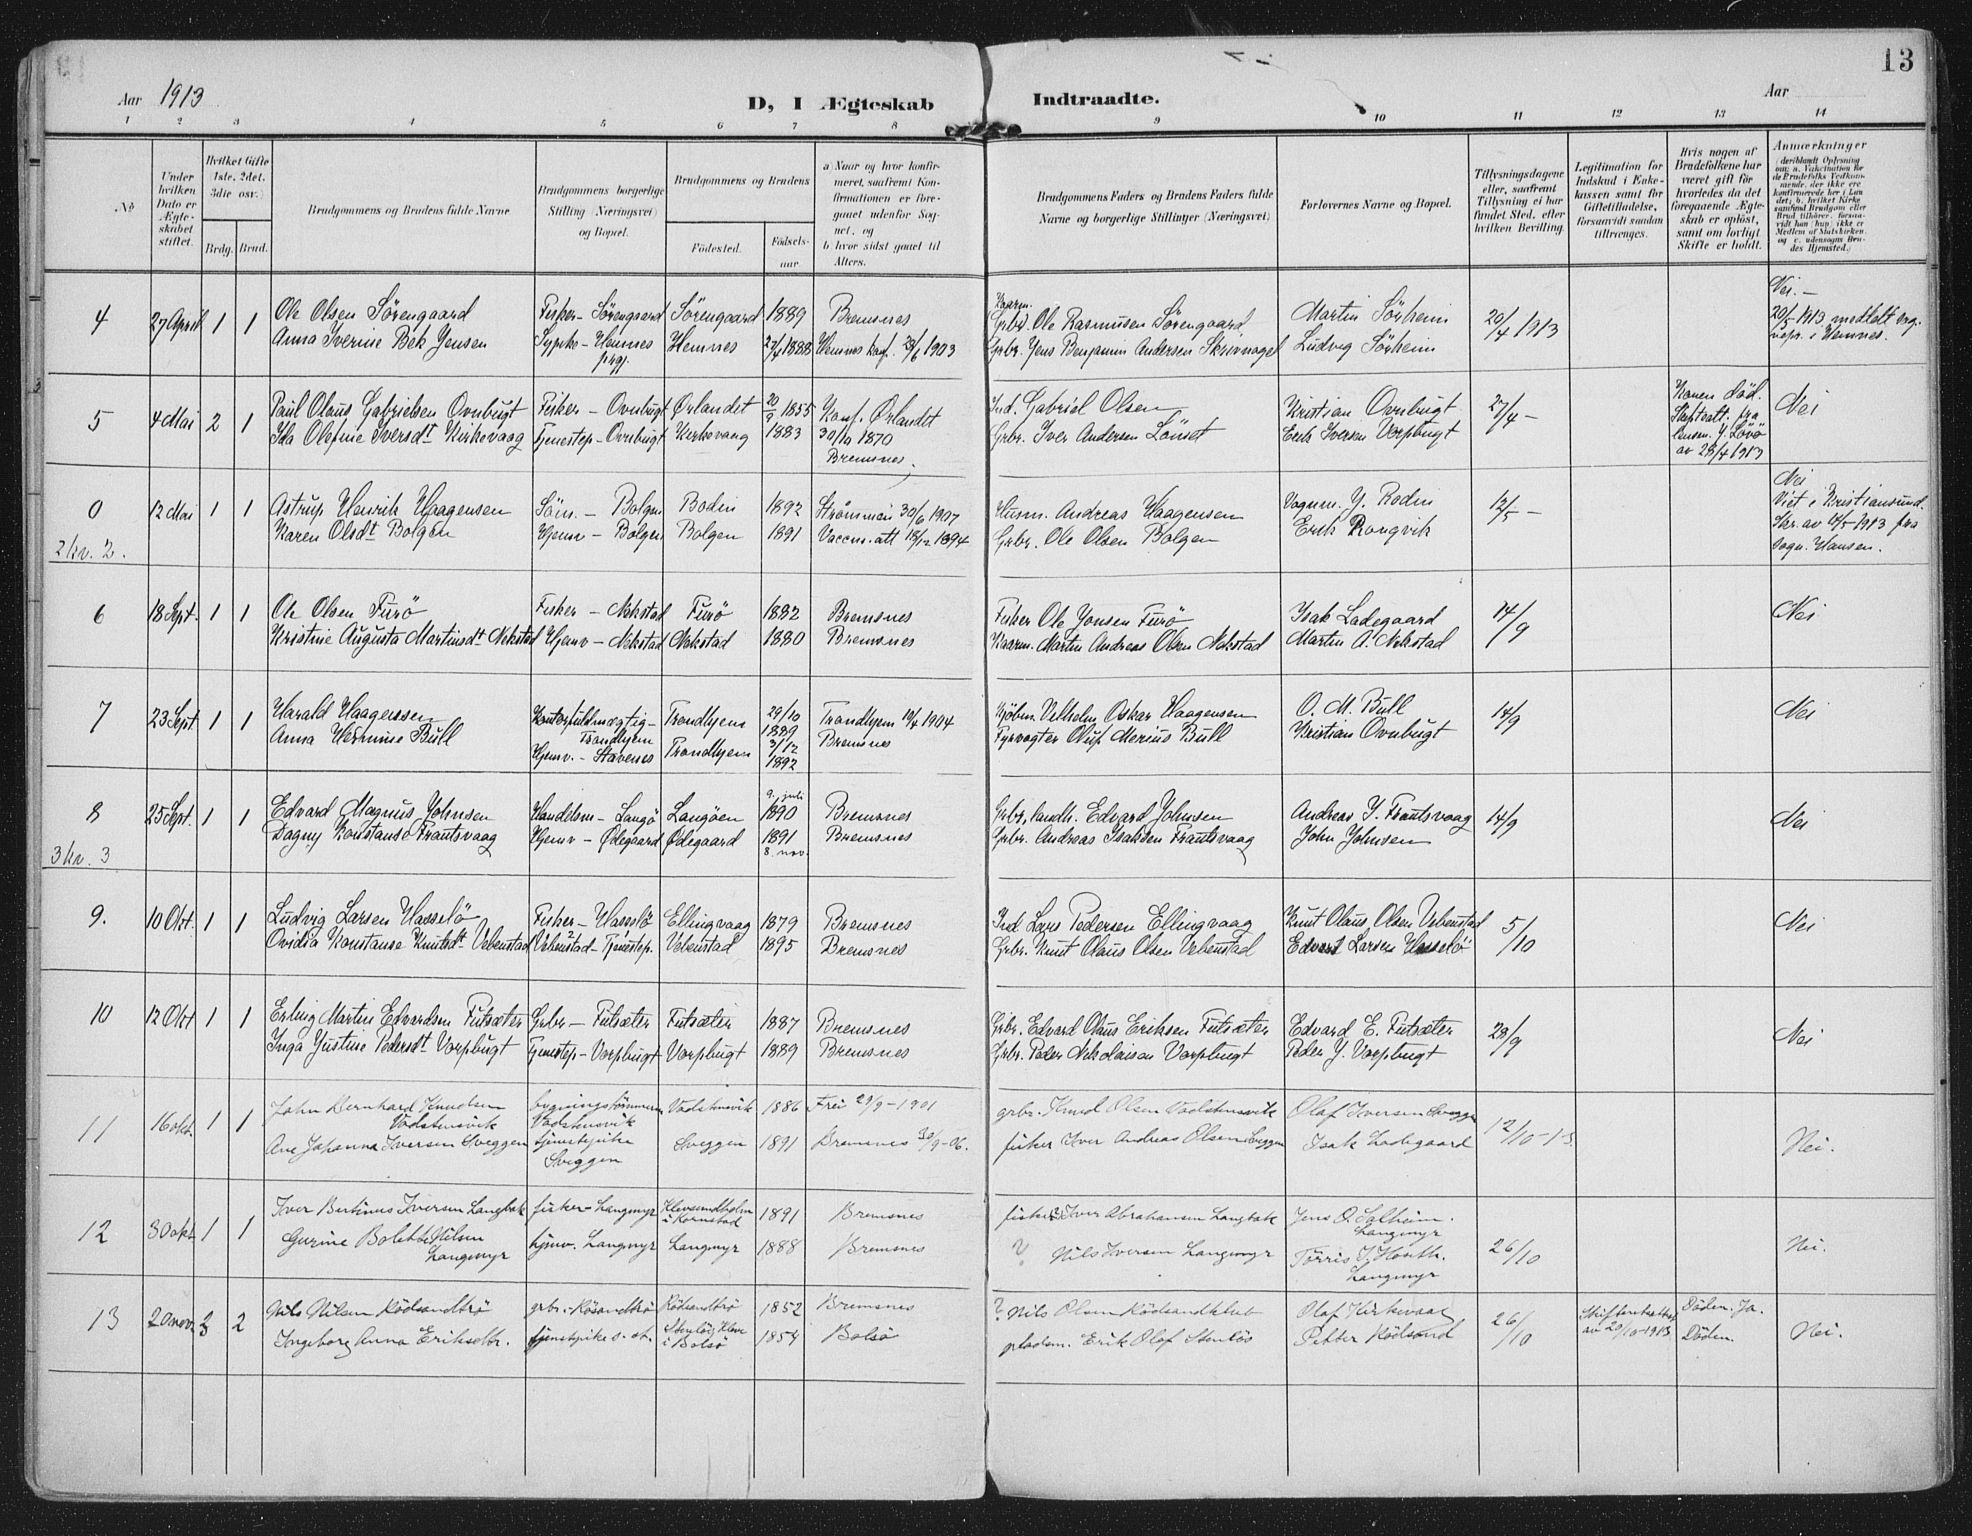 13
Aar 1913
D, I Ægteskab Indtraadte.
Aar
1 2 3 4 5 6 7 8 9 10 11 12 13 14
No
Under hvilken Dato er Ægteskabet stiftet.
Hvilket Gifte 1ste, 2det, 3die osv.
Brdg. Brud.
Brudgommens og Brudens fulde Navne
Brudgommens borgerlige Stilling (Næringsvei) og Bopæl.
Brudgommens og Brudens
Fødested.
Fødselsaar
a) Naar og hvor konfirmeret, saafremt Konfirmationen er foregaaet udenfor Sognet, og
b hvor sidst gaaet til Alters.
Brudgommens Faders og Brudens Faders fulde Navne og borgerlige Stillinger (Næringsvei)
Forlovernes Navne og Bopæl.
Tillysningsdagene eller, saafremt Tillysning ei har fundet Sted, efter hvilken Bevilling.
Legitimation for Indskud i Enkekassen samt for Giftetilladelse, forsaavidt saadan tiltrænges.
Hvis nogen af Brudefolkene har været gift før hvorledes da det foregaaende Ægteskab er opløst, samt om lovligt Skifte er holdt.
Anmærkninger
4 27 April 1 1 Ole Olsen Sørengaard Fisker - Sørengaard Sørengaard 1889 Bremsnes Kaarm. Grbr. Ole Rasmusen Sørengaard Martin Sørheim 20/4 1913 Nei. -
Anna Iverine Bek Jensen Sypike - Hemnes prgj. Hemnes 1888 Hemnes konf. 1903 Grbr. Jens Benjamin Andersen Ludvig Sørheim 20/5 1913 meddelt sog. i Hemnes.
5 4 Mai 2 1 Paul Olaus Gabrielsen Ovnbugt Fisker - Ovnbugt Ørlandet 20/9 1855 Konf. Ørlandet 30/10 1870 Ind. Gabriel Olsen Kristian Ovnbugt 27/4 - Konen død. Nei
Ida Olefine Iversdt Kirkevaag Tjenestep - Ovnbugt Kirkevaag 1883 Bremsnes Grbr. Iver Andersen Lønset Erik Iversen Vorpbugt Skifteatt. fra lensm. J. Løvø av 28/4 1913
0 12 Mai 1 1 Astrup Henrik Haagensen Søm. - Bolgen Bodin 1892 Strømmen 30/6 1907 Husm. Andreas Haagensen Vognm. J. Rodin 12/5 - Nei
2 kv. 2. Karen Olsdt Bolgen Hjemv - Bolgen Bolgen 1891 Vaccin. att 18/12 1894 Grbr. Ole Olsen Bolgen Erik Rongvik Viet i Kristiansund. Skr. av 1913 fra sogn. Hansen.
6 18 Sept. 1 1 Ole Olsen Furø Fisker - Nekstad Furø 1882 Bremsnes Fisker Ole Jonsen Furø Isak Ladegaard 14/9 Nei
Kristine Augusta Martinsdt Nekstad Hjemv - Nekstad Nekstad 1880 Bremsnes Kaarm. Martin Andreas Olsen Nekstad Martin A. Nekstad
7 23 Sept 1 1 Harald Haagensen Kontorfuldmægtig - Trondhjem Trondhjem 29/10 1889 Trondhjem 10/4 1904 Kjøbm. Vilhelm Oskar Haagensen O. M. Bull 14/9 Nei
Anna Hermine Bull Hjemv. - Stavenes Trondhjem 3/12 1892 Bremsnes Fyrvogter Oluf Merius Bull Kristian Ovnbugt
8 25 Sept. 1 1 Edvard Magnus Johnsen Handelsm - Langø Langøen 9. juli 1890 Bremsnes Grbr, handl. Edvard Johnsen Andreas J. Frantsvaag 14/9 Nei
3 kv. 3 Dagny Konstanse Frantsvaag Hjemv - Ødegaard Ødegaard 1891 8. nov. Bremsnes Grbr. Andreas Isaksen Frantsvaag John Johnsen
9. 10 Okt. 1 1 Ludvig Larsen Hasselø Fisker - Hasselø Ellingvaag 1879 Bremsnes Ind Lars Pedersen Ellingvaag Knut Olaus Olsen Vebenstad 5/10 Nei
Ovidia Konstanse Knutsdt. Vebenstad Vebenstad - Tjenestep. Vebenstad 1895 Bremsnes Grbr. Knut Olaus Olsen Vebenstad Edvard Larsen Hasselø
10 12 Okt 1 1 Erling Martin Edvardsen Futsæter Grbr - Futsæter Futsæter 1887 Bremsnes Grbr. Edvard Olaus Eriksen Futsæter Edvard E. Futsæter 28/9 Nei
Inga Justine Pedersdt. Vorpbugt Tjenestep - Vorpbugt Vorpbugt 1889 Bremsnes Grbr. Peder Nikolaisen Vorpbugt Peder J. Vorpbugt
11 16 okt. 1 1 John Bernhard Knudsen Vadstensvik bygningstømmerm Vadstensvik Vadstensvik 1886 Frei 29/9 - 1901 grbr. Knud Olsen Vadstensvik Olaf Iversen Sveggen 12/10 - 13. Nei.
Ane Johanna Iversen Sveggen tjenstpike Sveggen Sveggen 1891 Bremsnes 30/9 - 06. fisker Iver Andreas Olsen Sveggen Isak Ladegaard
12 30 okt 1 1 Iver Bertinus Iversen Langbak fisker - Langmyr Klevsundholm i Kornstad 1891 Bremsnes fisker Iver Abrahamsen Langbak Jens O. Solheim. Langmyr 26/10 Nei.
Gurine Bolette Nilsen Langmyr hjmv. Langmyr Langmyr 1888 Bremsnes ? Nils Iversen Langmyr Tørris J. Hauth. Langmyr
13 20 nov. 3 2 Nils Nilsen Rødsandtrø grbr. - Røsandtrø Rødsandtrø 1852 Bremsnes ? Nils Olsen Rødsandklub Olaf Kirkvaag 26/10 Skifteattest av 20/10 - 1913 Døden. Ja.
Ingeborg Anna Eriksdtr. tjenstpike s. st. Stenløs, Kleve i Bolsø 1854 Bolsø pladsm. Erik Olaf Stenløs Petter Rødsand Døden. Nei.